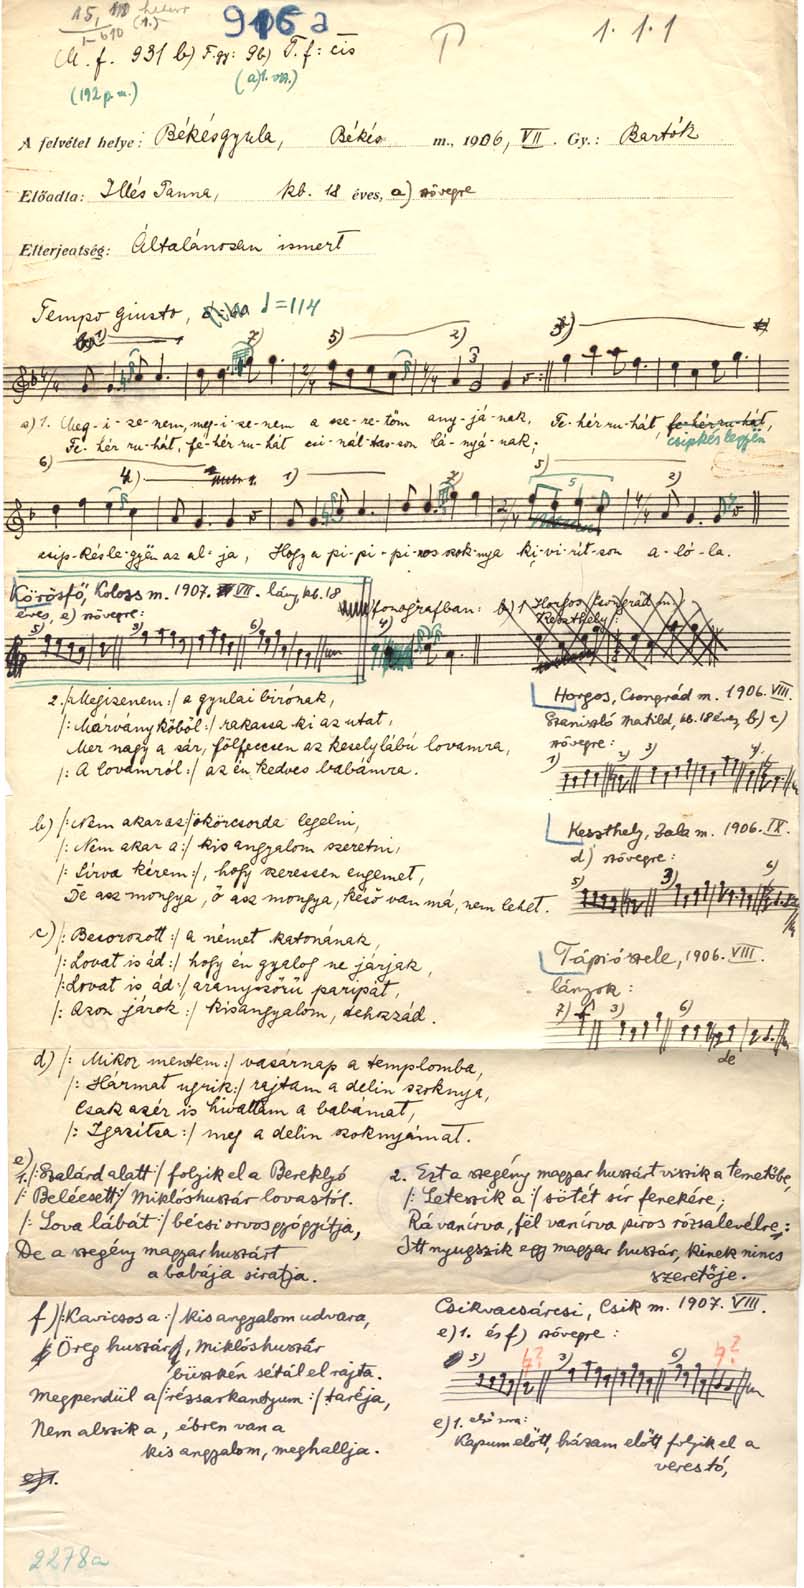 906a
1.1.1
M. f. 931 b) F. gy: 9b) T. f: cis
(192 p. m.)
A felvétel helye: Békésgyula, Békés m., 1906, VII. Gy.: Bartók
Előadta: Illés Panna, kb. 18 éves, a) szövegre
Elterjeatség: Általánosan ismert
Tempo giusto, ♩=114
a) 1. Meg-i-ze-nem, meg-i-ze-nem a sze-re-töm any-já-nak, Fe-hér ru-hát, fe-hér ru-hát,
Fe-hér ru-hát, fe-hér ru-hát csi-nál-tas-son lá-nyá-nak; csipkés legyën
csip-kés le-gyën az al-ja, Hogy a pi-pi-pi-ros szok-nya ki-vi-rít-son a-ló-la.
Körösfő, Kolozs m. 1907. VII. lány, kb. 18
éves, e) szövegre:
fonografban:
2. /:Megizenem:/ a gyulai birónak,
/:Márványköböl:/ rakassa ki az utat,
Mer nagy a sár, fölfeccsen az keselylábú lovamra,
/: A lovamról:/ az én kedves babámra.
Horgos, Csongrád m. 1906. VIII.
Szaniszló Matild, kb. 18 éves, b) c)
szövegre:
b) /:Nem akar az:/ ökörcsorda legelni,
/: Nem akar a:/ kis angyalom szeretni,
/: Sírva kérem:/, hogy szeressen engemet,
De asz mongya, ő asz mongya, késő van má, nem lehet.
Keszthely, Zala m. 1906. IX.
d) szövegre:
c) /: Besorozott:/ a német katonának,
/:Lovat is ád:/ hogy én gyalog ne járjak,
/:Lovat is ád:/ aranyszőrű paripát,
/: Azon járok:/ kisangyalom, tehozzád.
Tápiószele, 1906. VIII.
lányok:
de
d) /: Mikor mentem:/ vasárnap a templomba,
/: Hármat ugrik:/ rajtam a delin szoknya,
Csak azér is hivattam a babámat,
/: Igazítsa:/ meg a delin szoknyámat.
e) 1. /:Szalárd alatt:/ folyik el a Bereklyó
/: Beléesett:/ Miklóshuszár lovastól.
/: Lova lábát:/ bécsi orvos gyógyítja,
De a szegény magyar huszárt
a babája siratja.
2. Ezt a szegény magyar huszárt viszik a temetőbe,
/: Leteszik a:/ sötét sír fenekére;
Rá van írva, fël van írva piros rózsalevélre,:
Itt nyugszik egy magyar huszár, kinek nincs
szeretője.
f) /:Kavicsos a:/ kis angyalom udvara,
Öreg huszár, Miklóshuszár
büszkén sétál el rajta.
Megpendül a/:rézsarkantyum:/ taréja,
Nem alszik a, ébren van a
kis angyalom, meghallja.
Csikvacsárcsi, Csik m. 1907. VIII.
e) 1. és f) szövegre:
e) 1. első sora:
Kapum előtt, házam előtt folyik el a
veres tó,
2278a